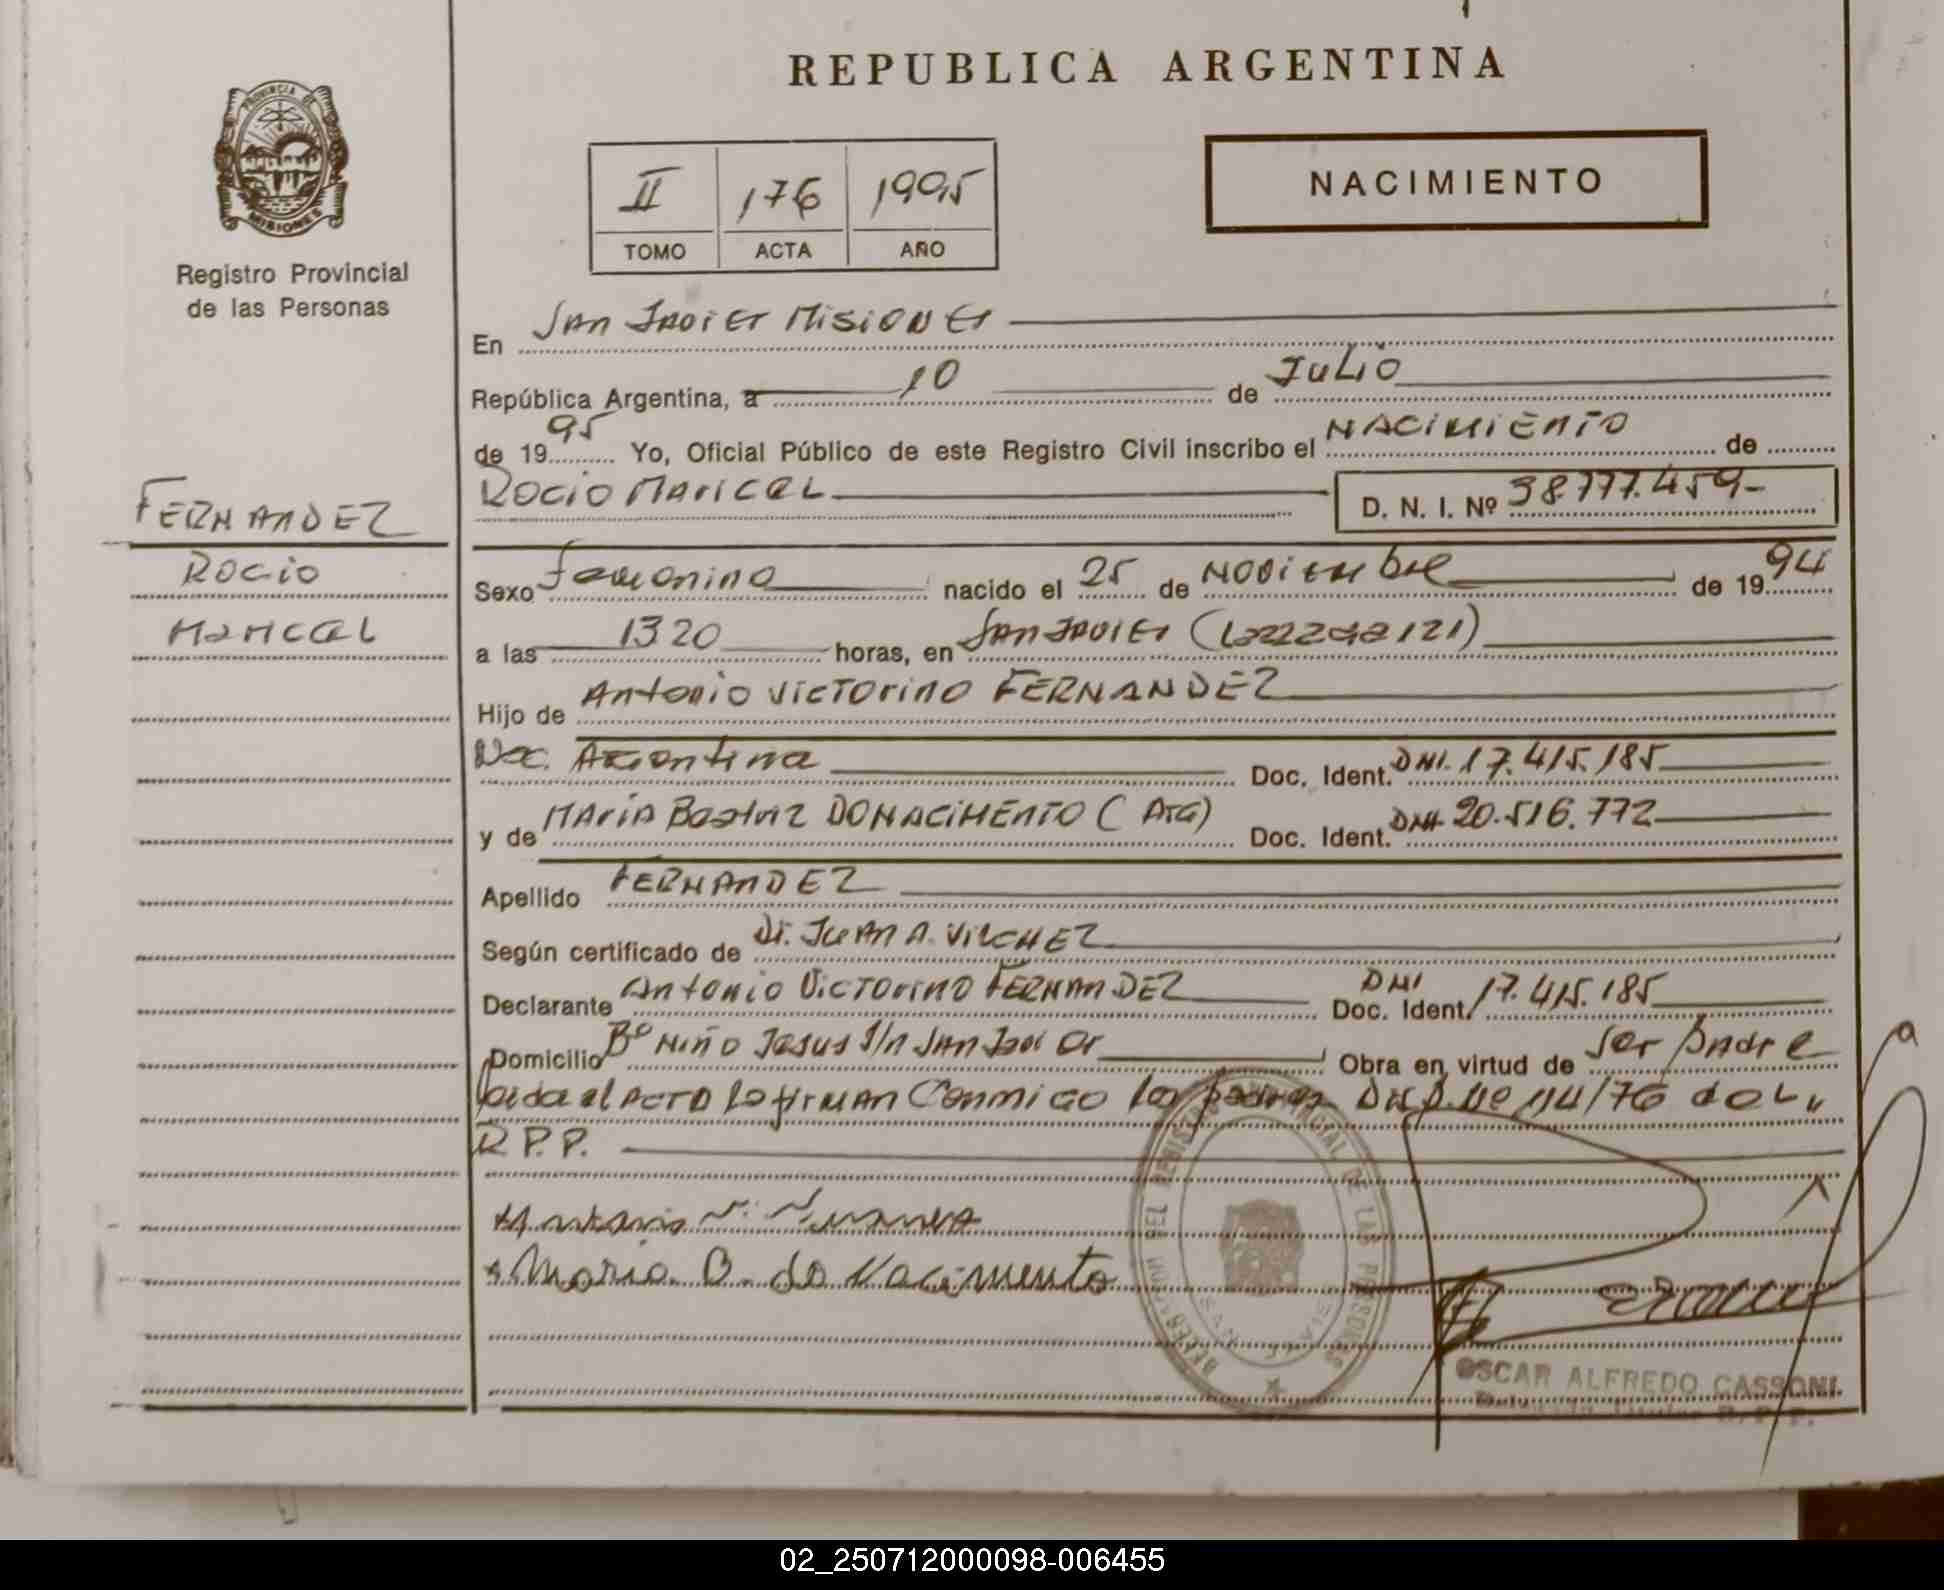 REPUBLICA ARGENTINA
PROVINCIA DE
MISIONES
Registro Provincial
de las Personas
II 176 1995
TOMO ACTA AÑO
NACIMIENTO
En San Javier Misiones
República Argentina, a 10 de Julio
de 1995 Yo, Oficial Público de este Registro Civil inscribo el NACIMIENTO de
ROCIO MARICEL D. N. I. Nº 38.777.459-
FERNANDEZ
ROCIO
MARICEL
Sexo Femenino nacido el 25 de Noviembre de 1994
a las 1320 horas, en San Javier
Hijo de Antonio Victorino FERNANDEZ
Nac. Argentina Doc. Ident. DNI. 17.415.185
y de MARIA Beatriz DONACIMENTO (Arg) Doc. Ident. DNI 20.516.772
Apellido FERNANDEZ
Según certificado de Dr. JUAN A. VILCHEZ
Declarante Antonio Victorino FERNANDEZ Doc. Ident. DNI 17.415.185
Domicilio Bº Niño Jesus S/n San Javier Obra en virtud de ser padre
Leida el ACTO la firman Conmigo los padres Nº 114/76 del
R.P.P.
Maria B. do Nacimento
DEL REGISTRO PROVINCIAL DE LAS PERSONAS
SAN JAVIER
OSCAR ALFREDO CASSONI
R.P.P.
02_250712000098-006455